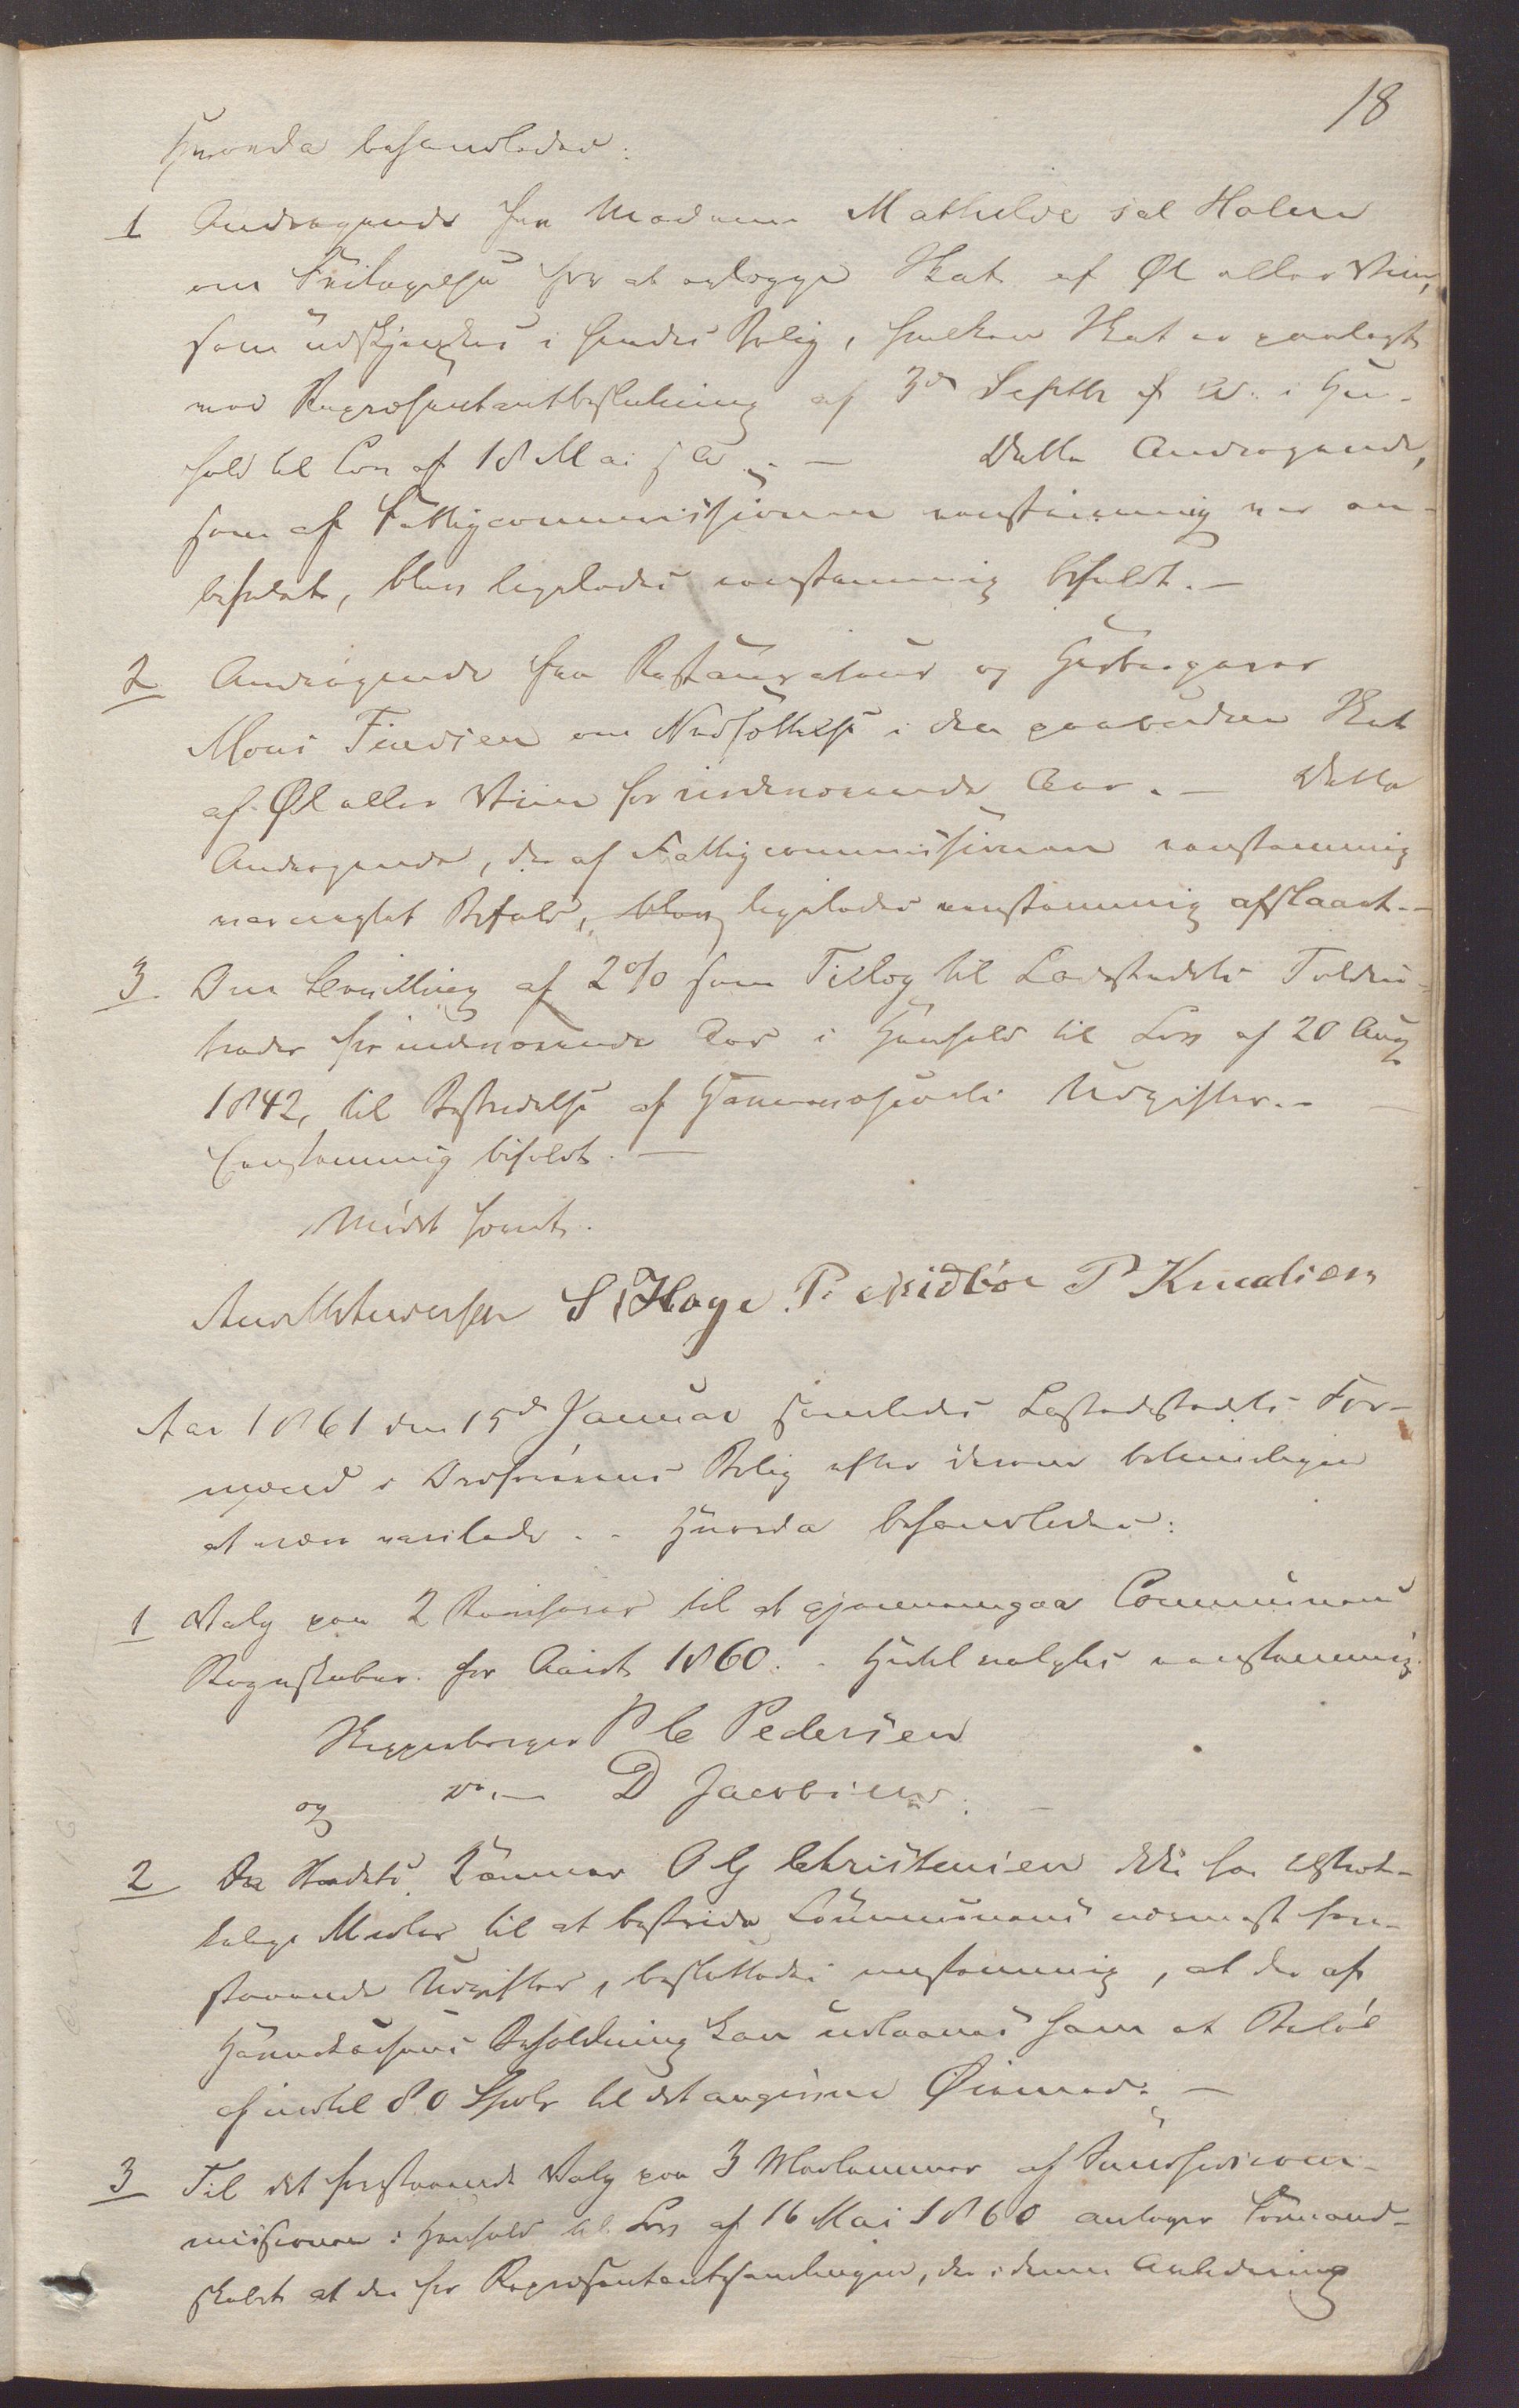 18
Hvorda behandledes:
1 Andragende fra Madame Mathilde sal Holm
om Fritagelse for at erlægge Skat af Øl eller Viin,
som udskjenkes i hendes Bolig, hvilken Skat er paalagt
ved Repræsentantbeslutning af 3de Septbr f A. i Hen-
hold til Lov af 18 Mai f A. — Dette Andragende,
som af Fattigcommissionen eenstemmig var an-
befalet, blev ligeledes eenstemmig bifaldt. —
2 Andragende fra Restaurateur og Herbergerer
Mons Finsen om Nedsættelse i den paabudne Skat
af Øl eller Viin for indeværende Aar. — Dette
Andragende, der af Fattigcommissionen eenstemmig
var nægtet Bifald, blev ligeledes eenstemmig afslaaet. —
3 Om Bevilling af 2% som Tillæg til Ladestedets Toldin-
trader for indeværende Aar i Henhold til Lov af 20 Aug
1842, til Bestridelse af Havnevæsenets Udgifter. —
Eenstemmig bifaldt. —
Mødet hævet.
S. Hage P. Knudsen
Aar 1861 den 15de Januar samledes Ladestedets For-
mænd i Ordførerens Bolig efter derom betimeligen
at være varslede. - Hvorda behandledes:
1 Valg paa 2 Revisorer til at gjennemgaa Communens
Regnskaber for Aaret 1860. - Hertil valgtes eenstemmig
Skipperborger P C Pedersen
og do. — D Jacobsen. —
2 Da Stedets Kæmner O G Christensen ikke har tilstræk-
kelige Midler til at bestride Communens nærmest fore-
staaende Udgifter, besluttedes eenstemmig, at der af
Havnekassens Beholdning kan udlaanes ham et Beløb
af indtil 80 Spdlr til det angivne Øiemed. —
3 Til det forestaaende Valg paa 3 Medlemmer af Sundhedscom-
missionen i Henhold til Lov af 16 Mai 1860 antager Formand-
skabet at der for Repræsentantsamlingen, der i denne Anledning